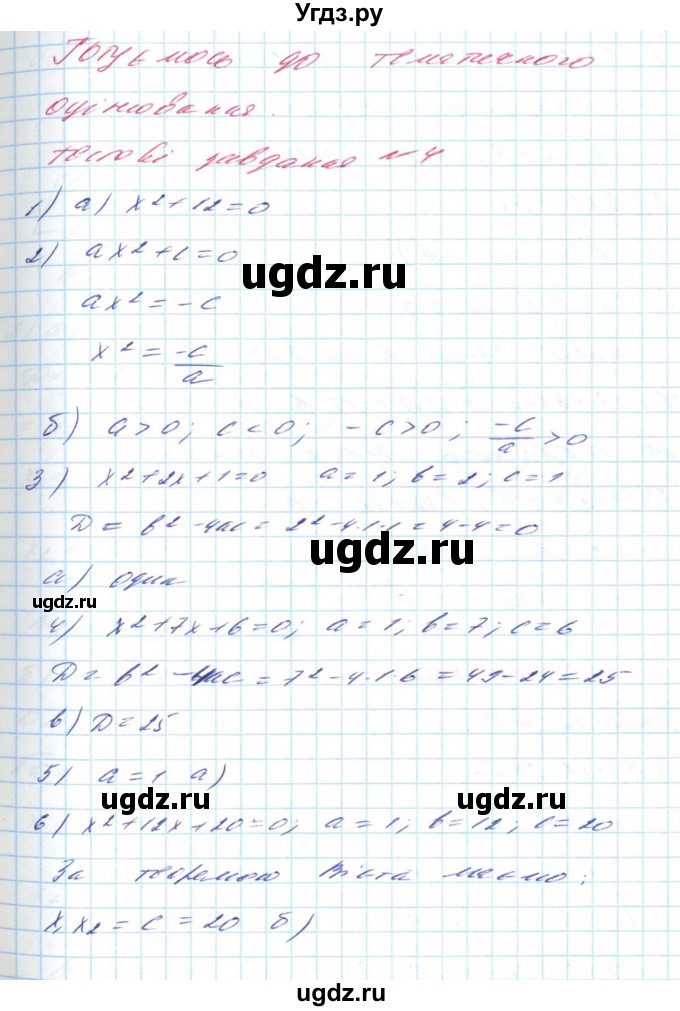 Угдз.ру
Готуємось до тематичного
оцінювання.
Тестові завдання №4
1) а) x²+12=0
2) ax²+c=0
ugdz.ru
ax²=-c
x²=-c/a
б) a>0; c<0; -c>0; -c/a>0
3) x²+2x+1=0 a=1; b=2; c=1
D=b²-4ac=2²-4·1·1=4-4=0
ugdz.ru
а) один
ugdz.ru
4) x²+7x+6=0; a=1; b=7; c=6
D=b²-4ac=7²-4·1·6=49-24=25
в) D=25
5) a=1 а)
ugdz.ru ugdz.ru
6) x²+12x+20=0; a=1; b=12; c=20
За теоремою Вієта маємо:
x₁x₂=c=20 б)
ugdz.ru